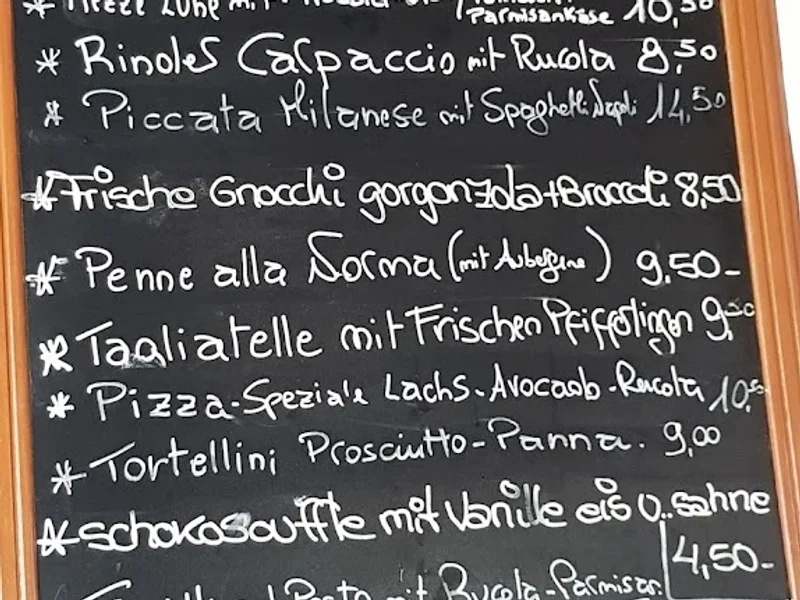 Parmisankäse 10,50
* Rinoles Carpaccio mit Rucola 8,50
* Piccata Milanese mit Spaghetti Napoli 14,50
* Frische Gnocchi gorgonzola + Broccoli 8,50
* Penne alla Norma (mit Aubergine) 9,50-
* Tagliatelle mit Frischen Pfifferlingen 9,50
* Pizza-Speziale Lachs-Avocado-Rucola 10,5
* Tortellini Prosciutto-Panna. 9,00
* schokosouffle mit Vanille eis u. sahne
4,50-
Pesto mit Rucola-Parmisan